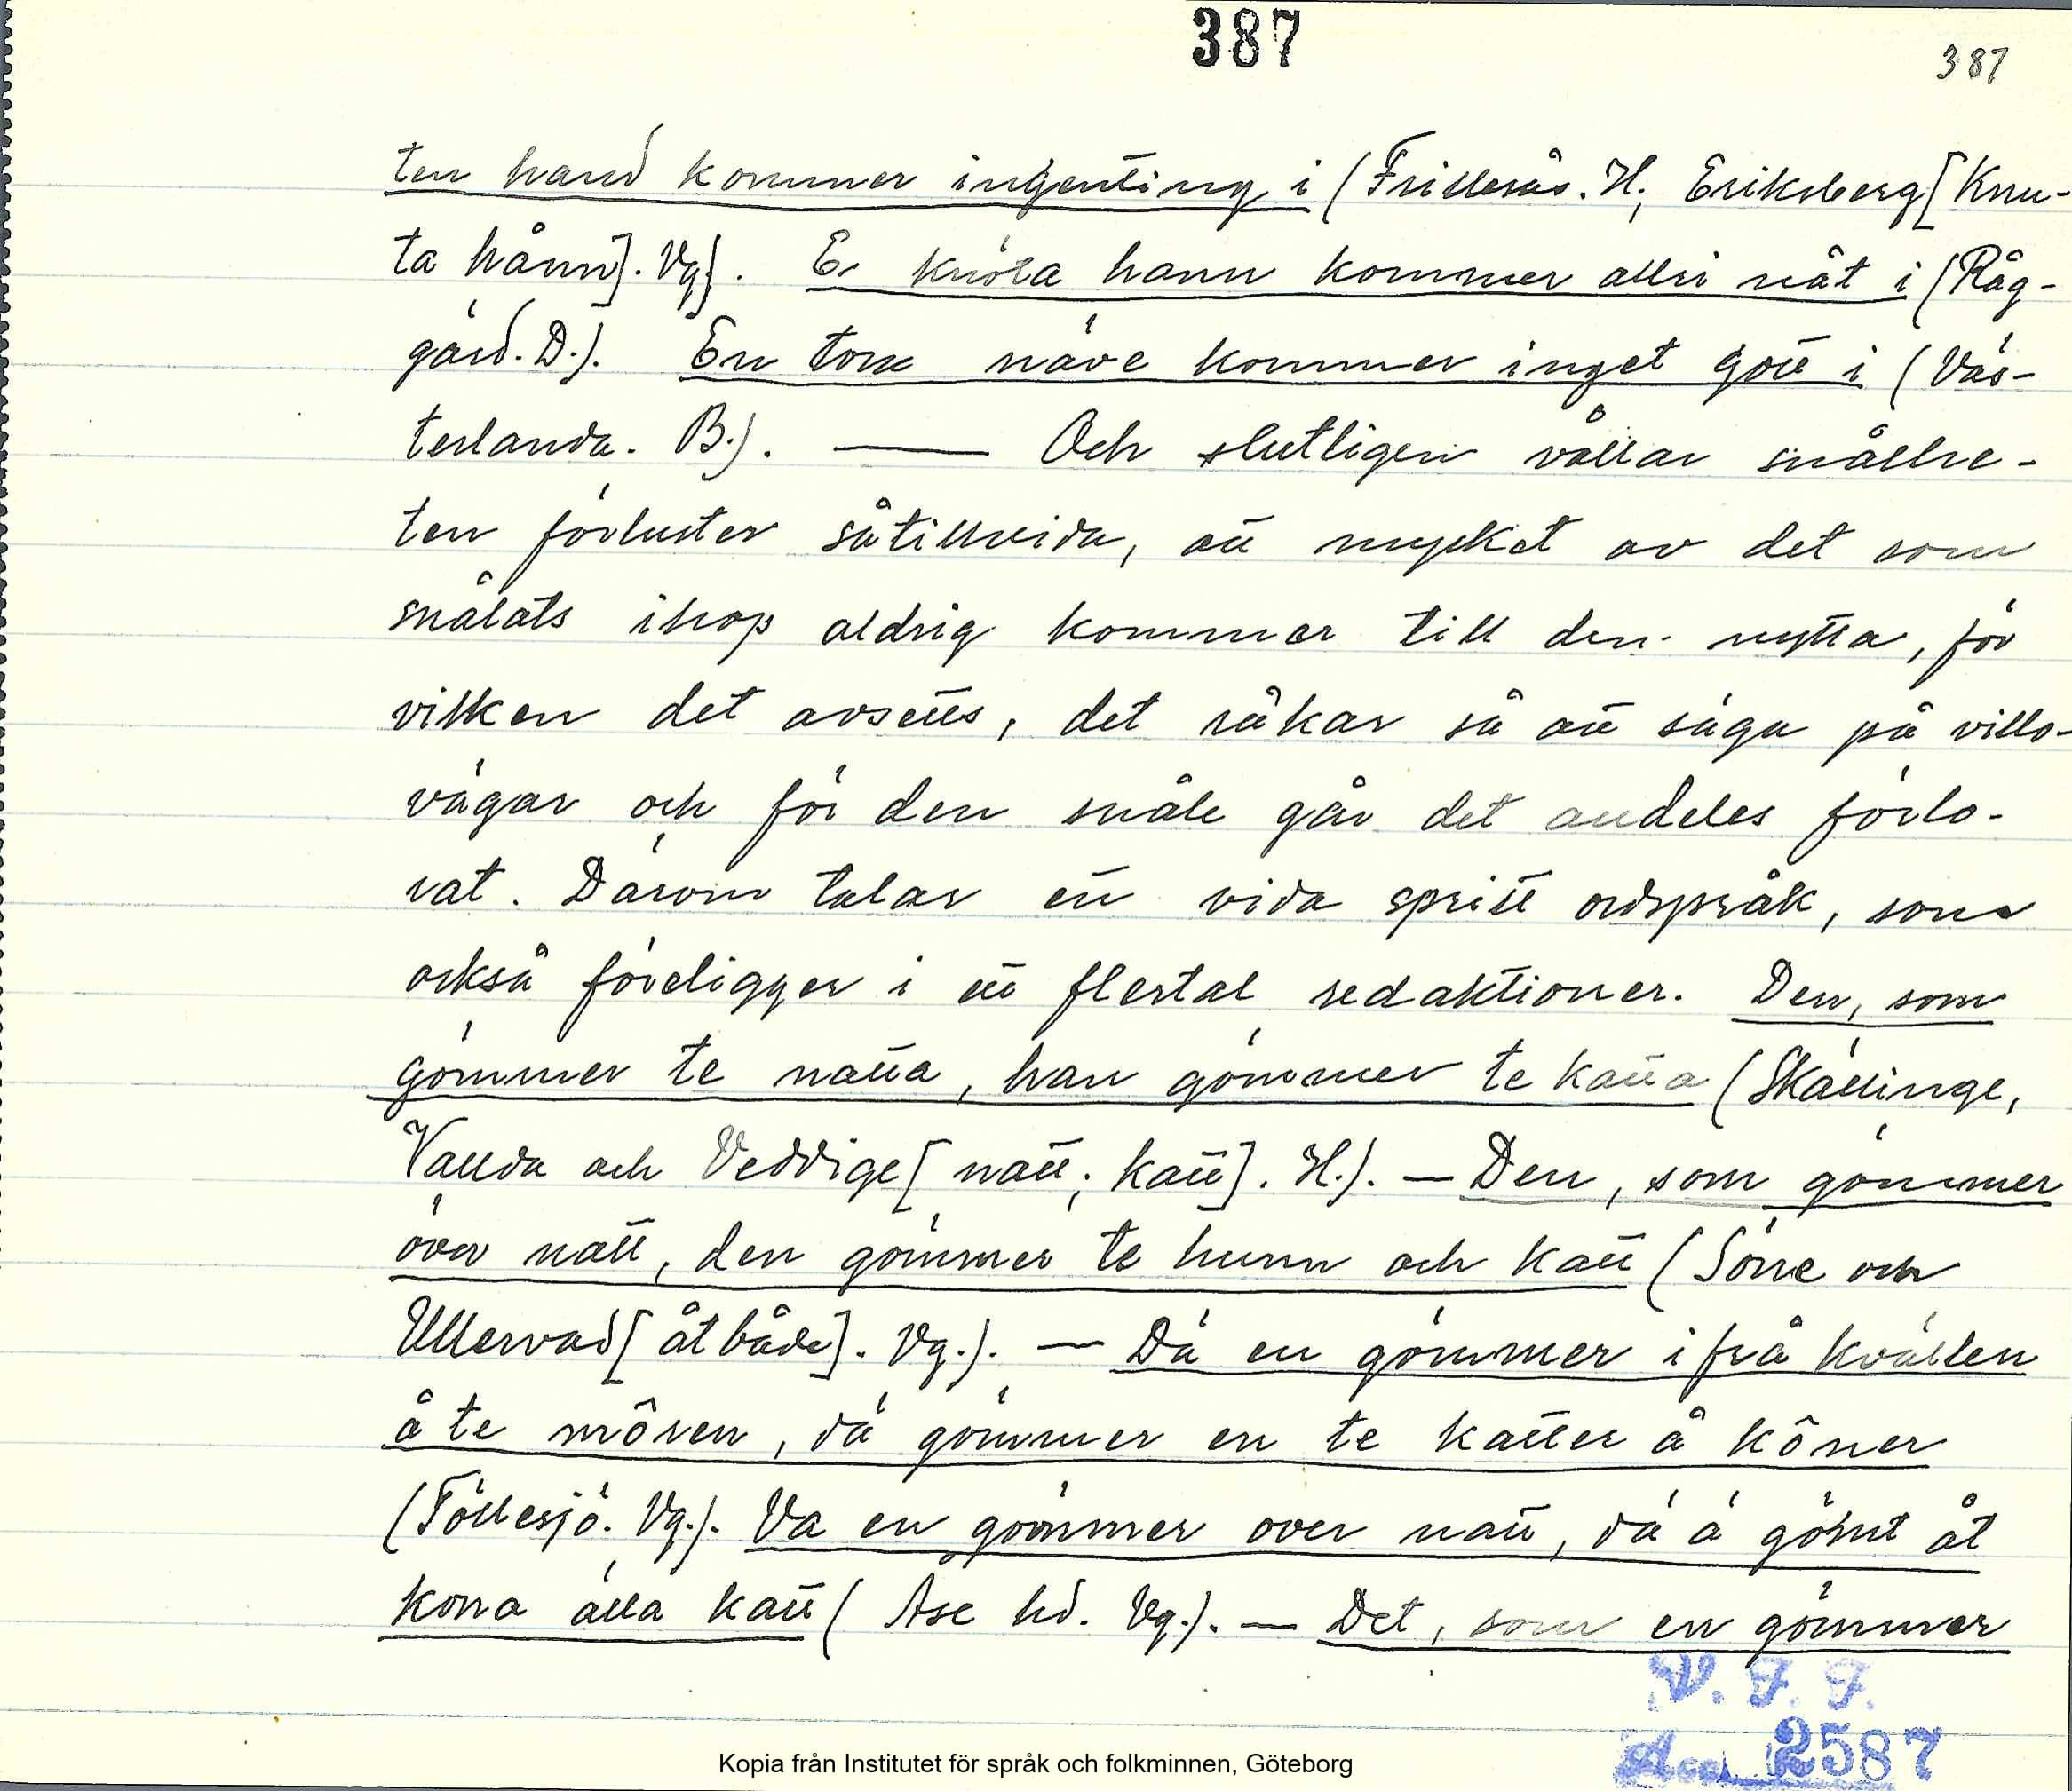 387
387
ten hand kommer ingenting i (Frillesås. H; Eriksberg [Knu-
ta hånn]. Vg). E knöta hann kommer allri nåt i (Råg-
gärd. D.). En torr näve kommer inget gott i (Väs-
terlanda. B.). — Och slutligen vållar snålhe-
ten förluster såtillvida, att mycket av det som
snålats ihop aldrig kommer till den nytta, för
vilken det avsetts, det råkar så att säga på villo-
vägar och för den snåle går det andeles förlo-
rat. Därom talar ett vida spritt ordspråk, som
också föreligger i ett flertal redaktioner. Den, som
gömmer te natta, han gömmer te katta (Skällinge,
Vallda och Veddige [natt; katt]. H.). — Den, som gömmer
över natt, den gömmer te hunn och katt (Söne och
Ullervad [åt både]. Vg.). — Dä en gömmer ifrå kvällen
å te môren, dä gömmer en te katter å kôner
(Töllesjö. Vg.). Va en gömmer over natt, dä ä gömt åt
kona älla katt (Åse hd. Vg.). — Det, som en gömmer
V. F. F.
Acc. 2587
Kopia från Institutet för språk och folkminnen, Göteborg